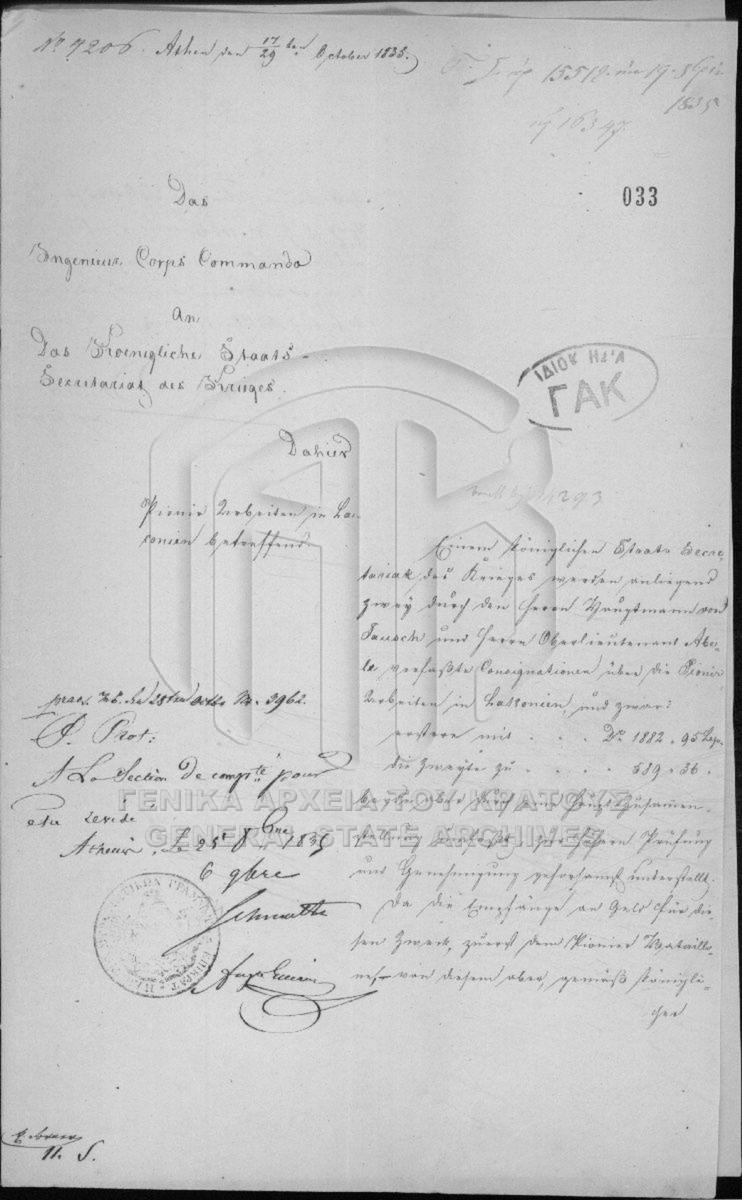 No 7206. Athen den 17/29 ten October 1835.
15512
1835
16347
033
Das
Ingenieur Corps Commando
An
Das Koenigliche Staats-
Secretariat des Krieges.
ΓΑΚ
Dahier
Pionir Arbeiten in La-
conien betreffend.
293
Einem königlichen Staats Secre-
tariat des Krieges werden anliegend
zwey durch den Herrn Hauptmann von
Tausch und Herrn Oberlieutenant Abe-
le verfaßte Consignationen über die Pionir
Arbeiten in Lakonien, und zwar:
erstere mit . . . . Dr. 1882 . 95 Lep.
die zweyte zu . . . . . 589 . 36 .
zur höhern Prüfung
und Genehmigung gehorsamst unterstellt.
Da die Empfänge an Geld für die-
sen Zweck, zuerst dem Pionier Bataillo-
ne, von diesem aber, gemäß königli-
cher
praes. den 28ten Octbr No. 3962.
P. Prot:
A La Section de compté pour
etre revidé
Athenes, Le 25 8bre 1835
6 9bre
Schmaltz
ΓΕΝΙΚΑ ΑΡΧΕΙΑ ΤΟΥ ΚΡΑΤΟΥΣ
GENERAL STATE ARCHIVES
11. S.